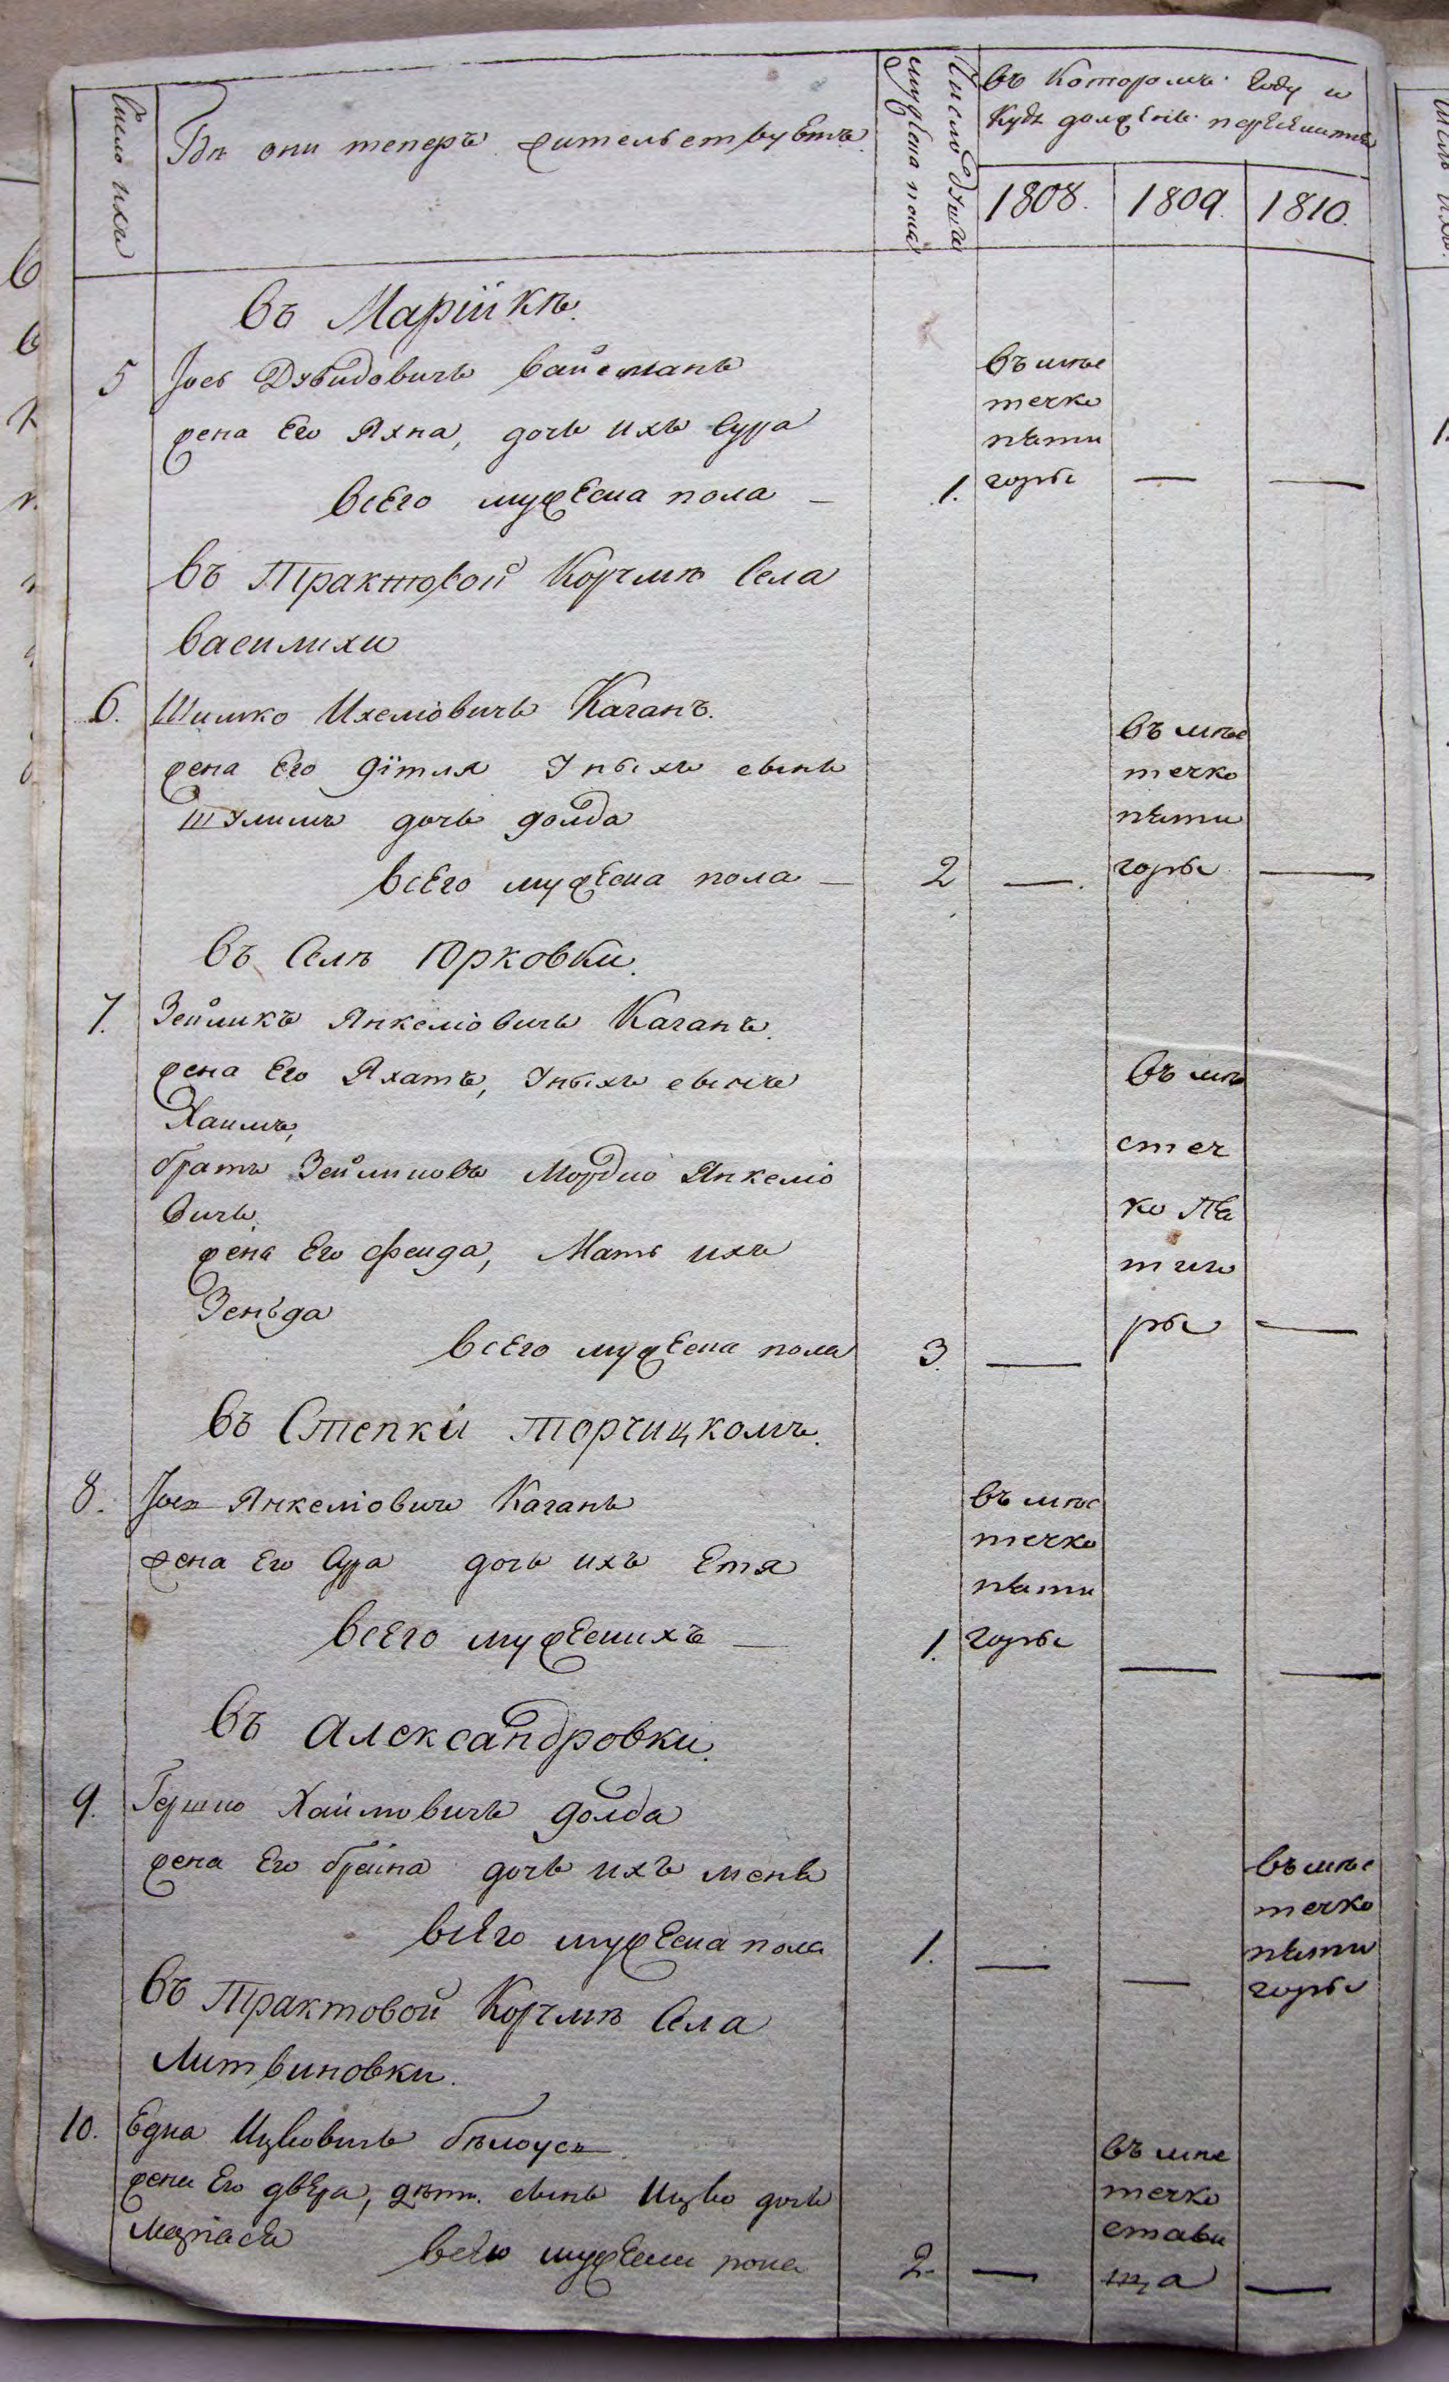 Число ихъ
Гдѣ они теперъ жительствуютъ
Число душъ
мужеска пола
въ Которомъ году и
Куда должны переѣйти
1808. 1809. 1810.
Въ Марійкѣ.
5 Давидовичъ Вайсманъ
жена Его Яхна, дочь ихъ Сура
всего мужеска пола — 1.
въ мѣс
течко
пяти
горы — —
въ Трактовой Корчмѣ Села
Василихи
6. Шимко Ихеліовичъ Каганъ.
жена Его Дітля У ныхъ сынъ
Шулимъ дочь Голда
всего мужеска пола — 2 —
въ мѣс
течко
пяти
горы —
въ Селѣ Юрковки.
7. Зейликъ Янкеліовичъ Каганъ.
жена Его Яхатъ, Уныхъ сынъ
Хаимъ,
братъ Зейликовъ Мордко Янкеліо
вичъ.
жена Его Фейга, Мать ихъ
всего мужеска пола 3. —
въ мѣ
стеч
ко Пя
тиго
ры —
въ Степки Торчицкомъ.
8. Янкеліовичъ Каганъ
жена Его Сура дочь ихъ Етя
всего мужескихъ — 1.
въ мѣс
течко
пяти
горы — —
въ Александровки.
9. Гершко Хаймовичъ Голда
жена Его Брейна дочь ихъ
всего мужеска пола 1. — —
въ мѣс
течко
пяти
горы
въ Трактовой Корчмѣ Села
Литвиновки.
10. Ицковичъ Бѣлоусъ
жена Его Двера, дѣти. сынъ Ицко дочь
всего мужеска пола 2. —
въ мѣс
течко
стави
ща —